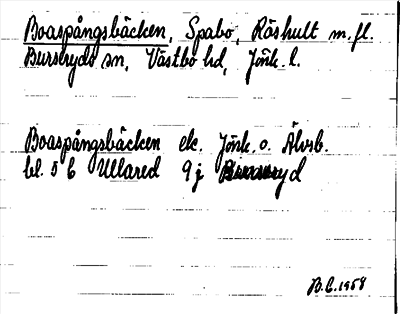 Boaspångsbäcken, Spabo, Råshult m.fl.
Burseryds sn, Västbo hd, Jönk. l.
Boaspångsbäcken ek. Jönk. o. Älvsb.
bl. 5 C Ullared 9 j
B.C. 1958